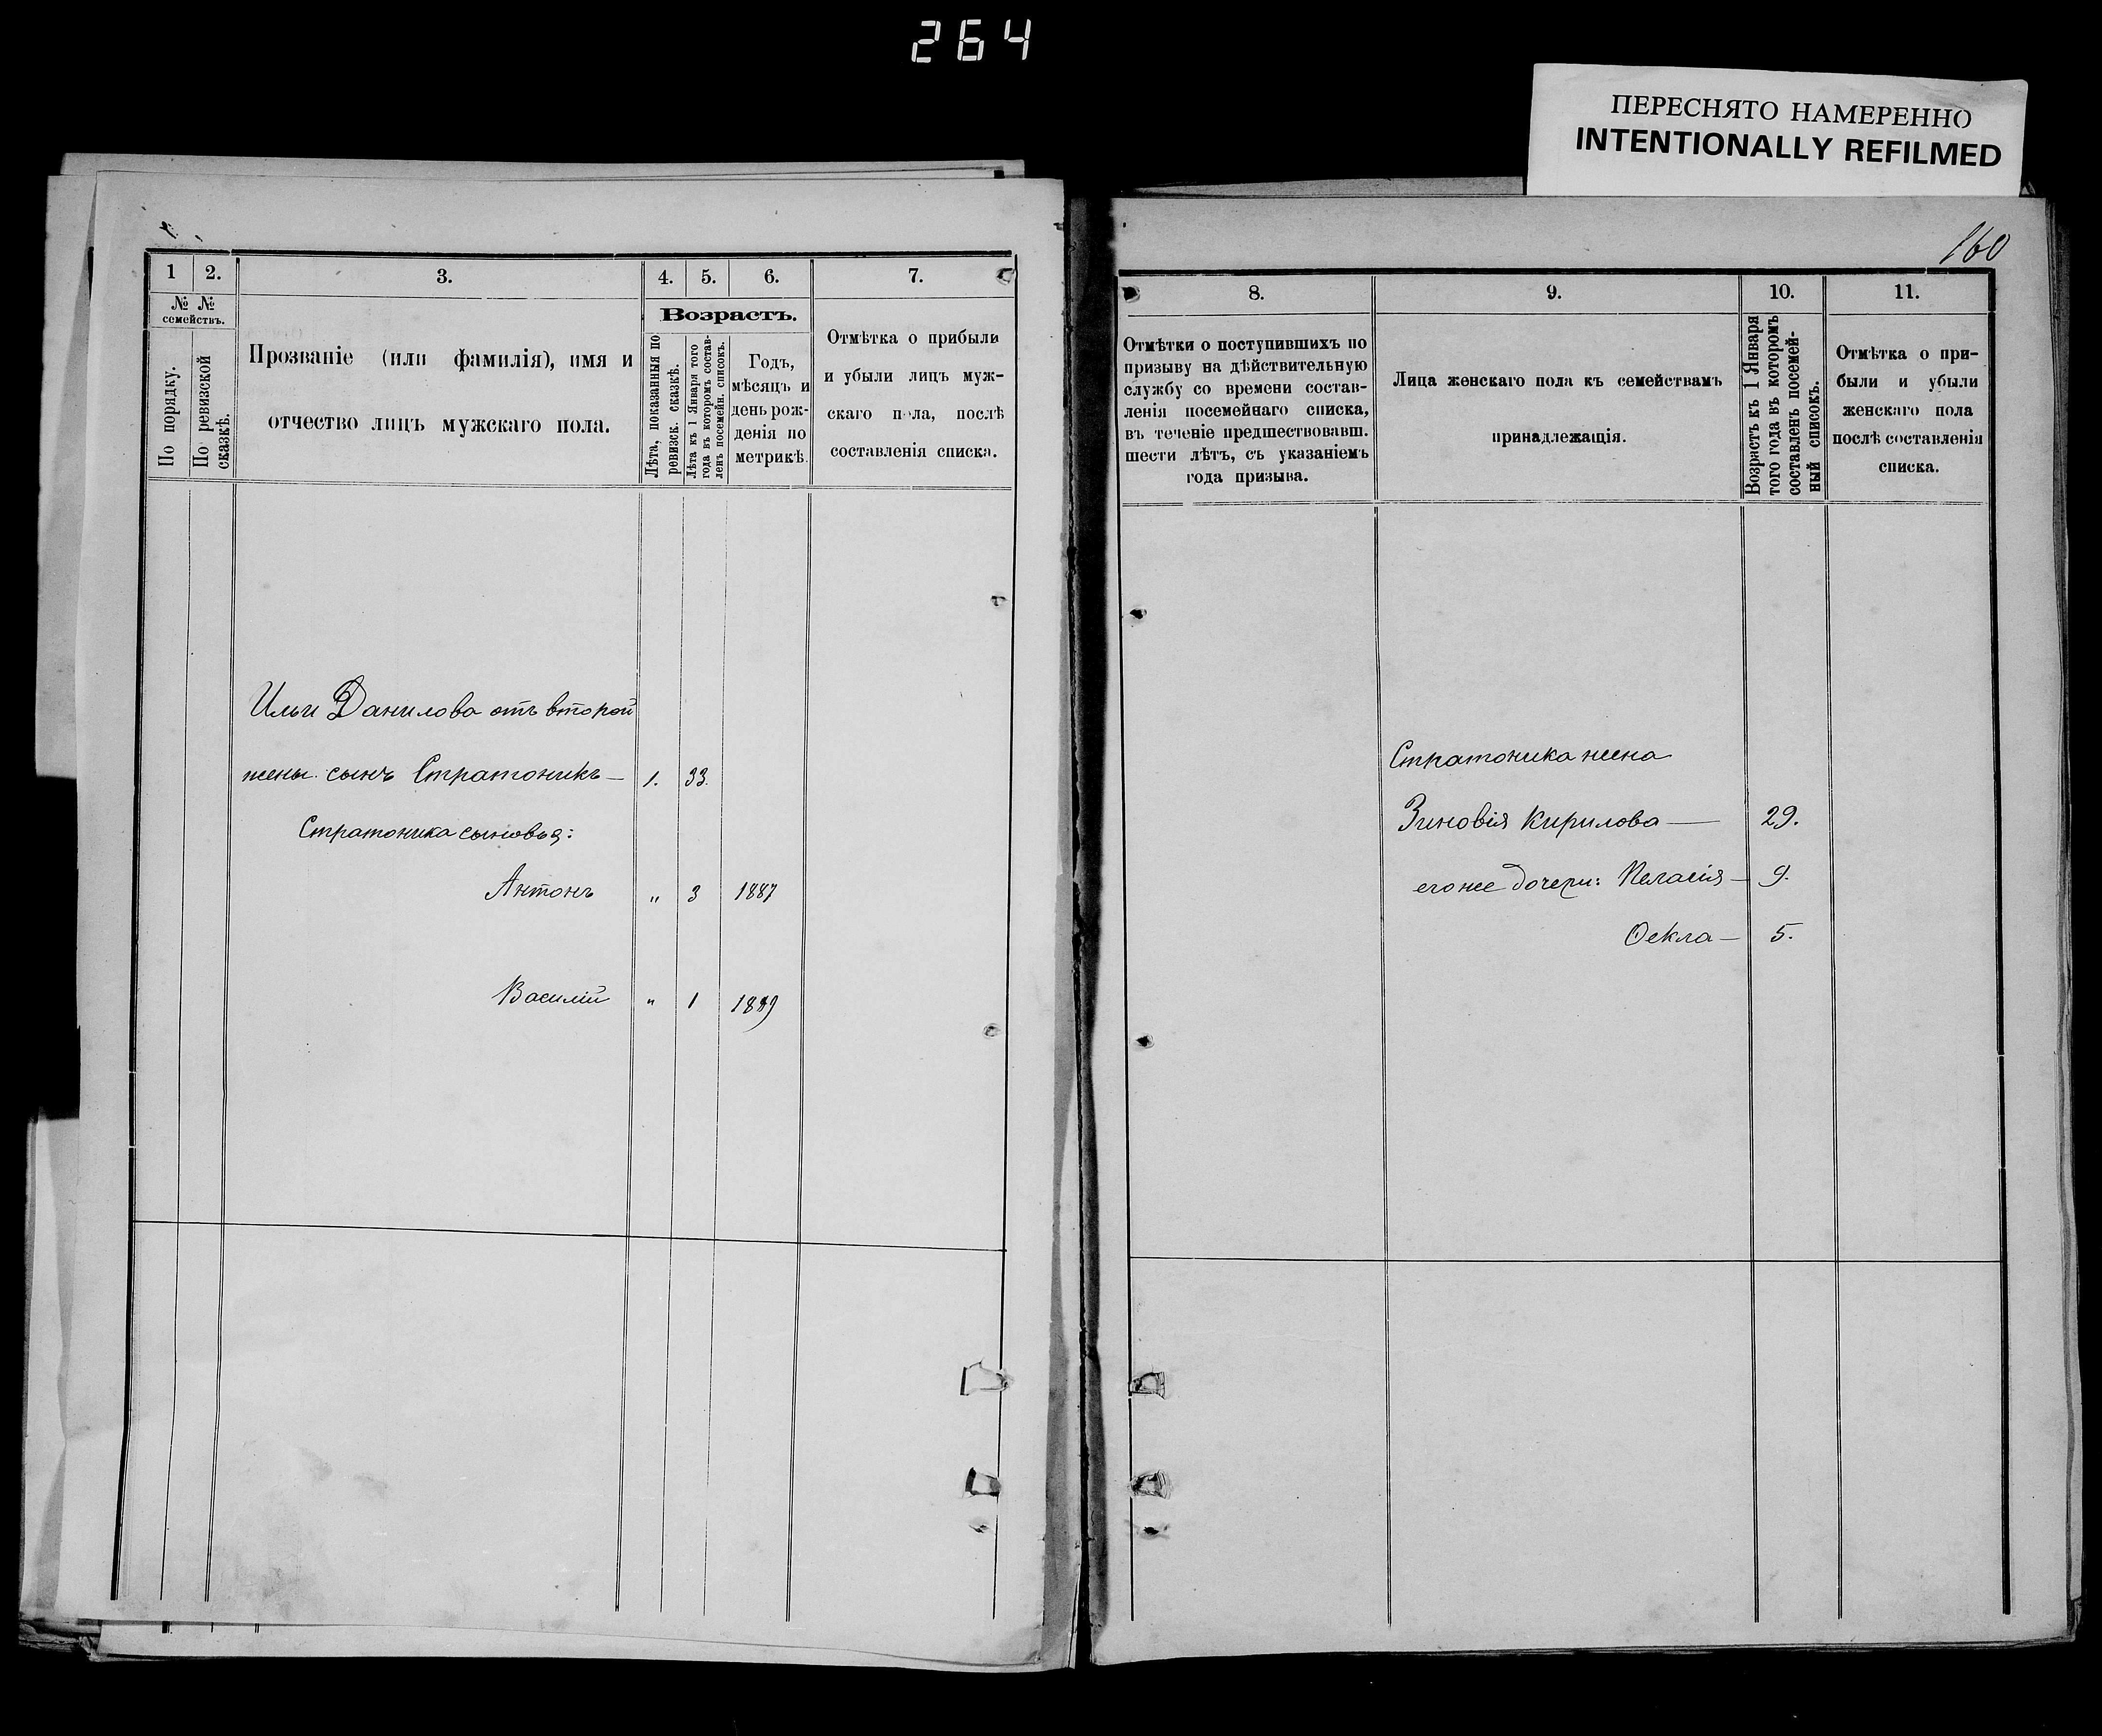 264
ПЕРЕСНЯТО НАМЕРЕННО
INTENTIONALLY REFILMED
1
2.
3.
4.
5.
6.
7.
№ №
семействъ.
По порядку.
По ревизской
сказкѣ.
Прозваніе (или фамилія), имя и
отчество лицъ мужскаго пола.
Возрастъ.
Лѣта, показанныя по
ревизск. сказкѣ.
Лѣта къ 1 Января того
года въ которомъ состав-
ленъ посемейн. списокъ.
Годъ,
мѣсяцъ и
день рож-
денія по
метрикѣ.
Отмѣтка о прибыли
и убыли лицъ муж-
скаго пола, послѣ
составленія списка.
Ильи Данилова отъ второй
жены сынъ Стратоникъ — 1. 33.
Стратоника сыновья:
Антонъ " 3 1887
Василій " 1 1889
160
8.
9.
10.
11.
Отмѣтки о поступившихъ по
призыву на дѣйствительную
службу со времени состав-
ленія посемейнаго списка,
въ теченіе предшествовавш.
шести лѣтъ, съ указаніемъ
года призыва.
Лица женскаго пола къ семействамъ
принадлежащія.
Возрастъ къ 1 Января
того года въ которомъ
составленъ посемей-
ный списокъ.
Отмѣтка о при-
были и убыли
женскаго пола
послѣ составленія
списка.
Стратоника жена
Зиновія Кирилова — 29.
его же дочери: Пелагія — 9.
Ѳекла — 5.